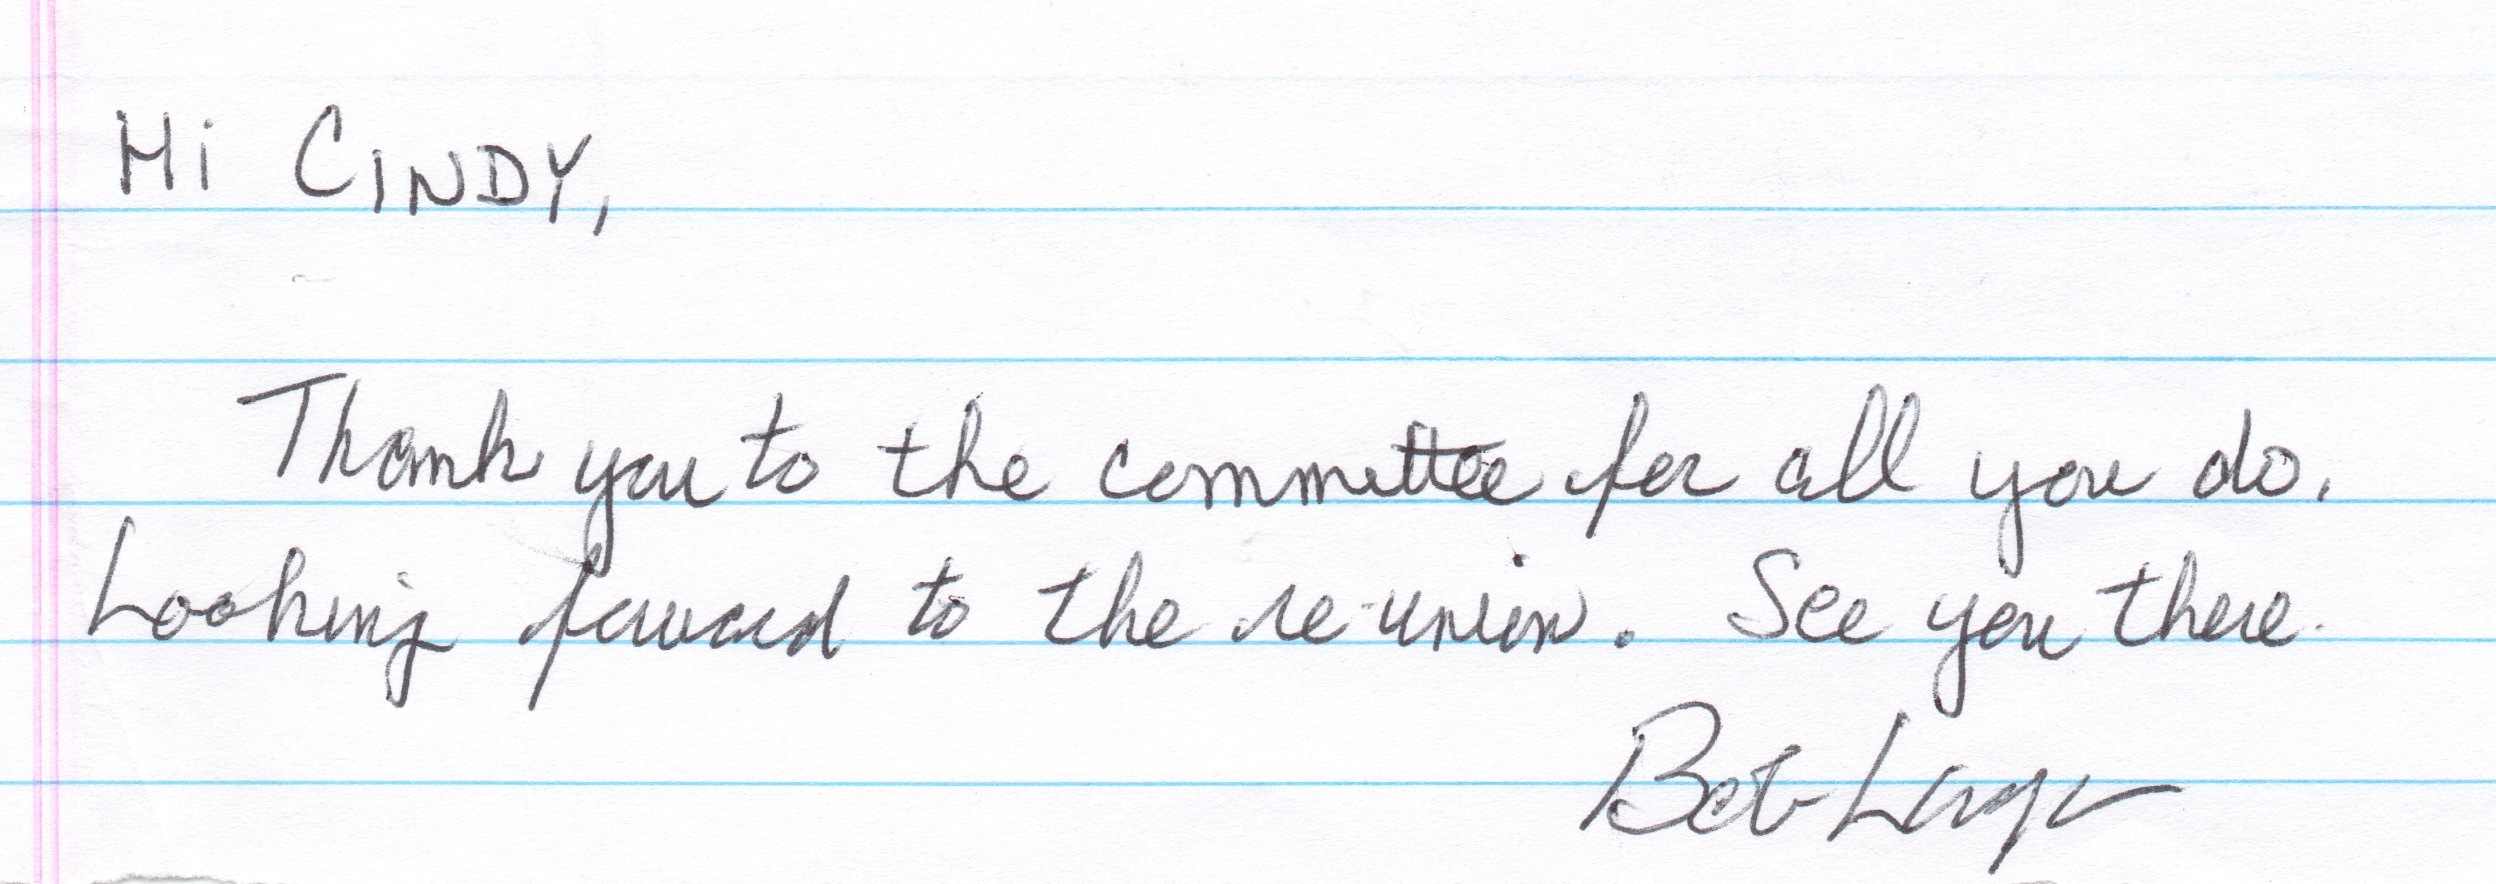 Hi CINDY,
Thank you to the committee for all you do.
Looking forward to the re-union. See you there.
Bob